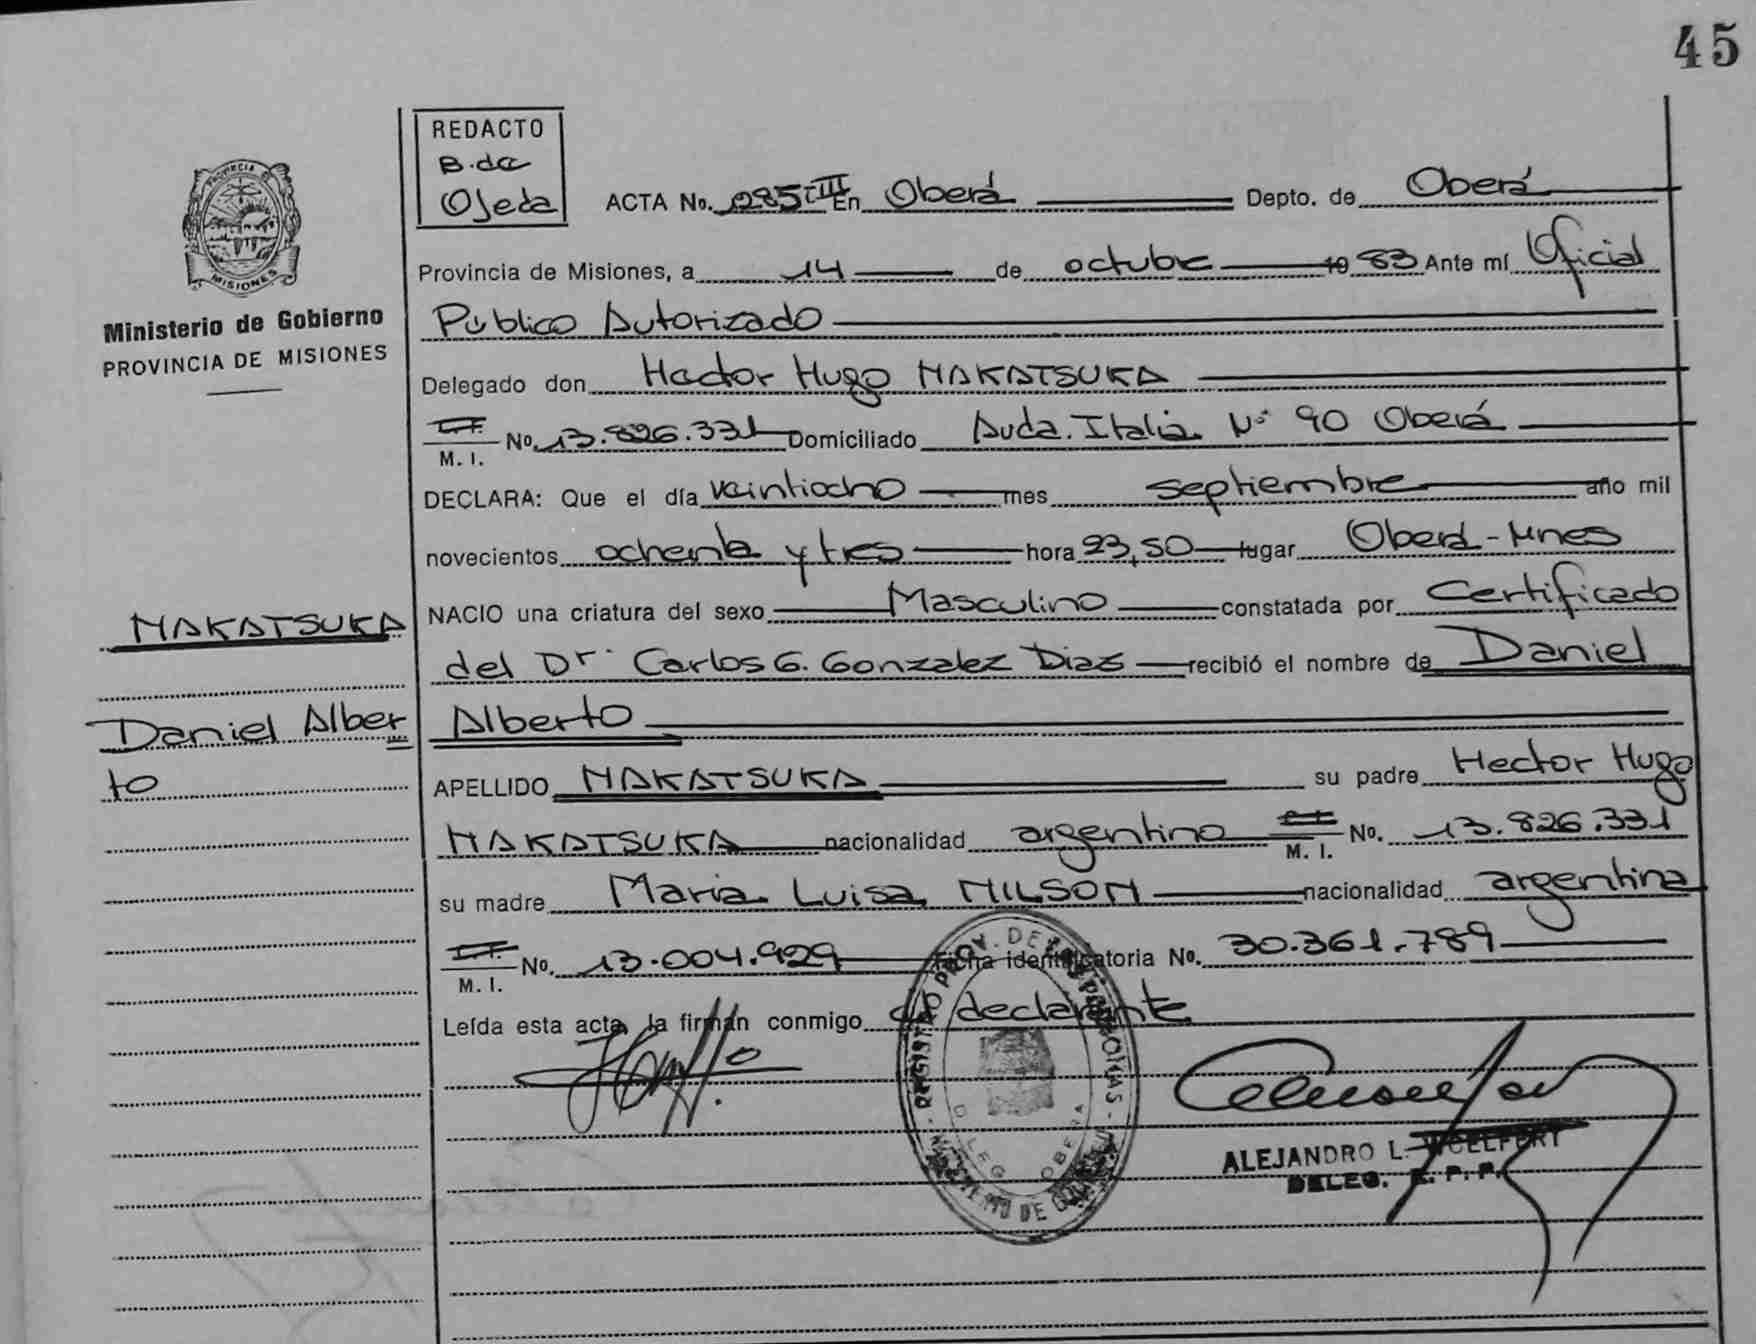 45
REDACTO
B. de
Ojeda
ACTA No. 285 III En Oberá Depto. de Oberá
Provincia de Misiones, a 14 de octubre 19 83 Ante mí Oficial
Público Autorizado
Delegado don Hector Hugo NAKATSUKA
C.I. M. I. No. 13.826.331 Domiciliado Avda. Italia Nº 90 Oberá
DECLARA: Que el día veintiocho mes septiembre año mil
novecientos ochenta y tres hora 23,50 lugar Oberá - Mnes
NACIO una criatura del sexo Masculino constatada por Certificado
del Dr. Carlos G. Gonzalez Diaz recibió el nombre de Daniel
Alberto
APELLIDO NAKATSUKA su padre Hector Hugo
NAKATSUKA nacionalidad argentino C.I. M. I. No. 13.826.331
su madre Maria Luisa NILSON nacionalidad argentina
C.I. M. I. No. 13.004.929 Ficha identificatoria No. 30.361.789
Leída esta acta, la firman conmigo el declarante
ALEJANDRO L. WOELFERT
DELEG. R. P. P.
PROVINCIA DE MISIONES
Ministerio de Gobierno
PROVINCIA DE MISIONES
NAKATSUKA
Daniel Alber
to
REGISTRO PROV. DE LAS PERSONAS
MINISTERIO DE GOBIERNO
DELEG. OBERA